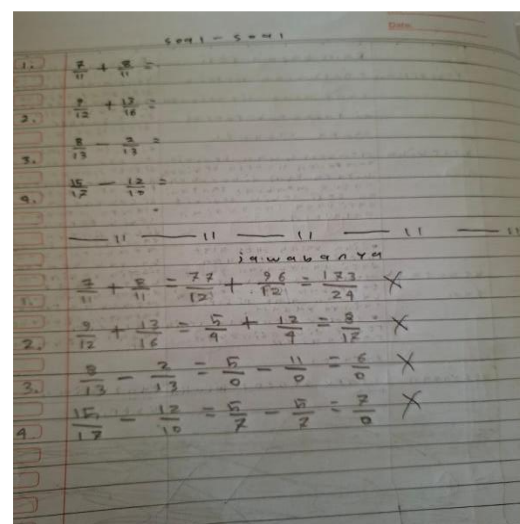 Date
soal - soal
1. 7/11 + 8/11 =
2. 9/12 + 13/16 =
3. 8/13 - 2/13 =
4. 15/17 - 12/10 =
—— 11 —— 11 —— 11 —— 11 —— 11
jawabanya
1. 7/11 + 8/11 = 77/12 + 96/12 = 173/24 X
2. 9/12 + 13/16 = 5/9 + 12/9 = 8/17 X
3. 8/13 - 2/13 = 5/0 - 11/0 = 6/0 X
4 15/17 - 12/10 = 5/7 - 5/7 = 7/0 X